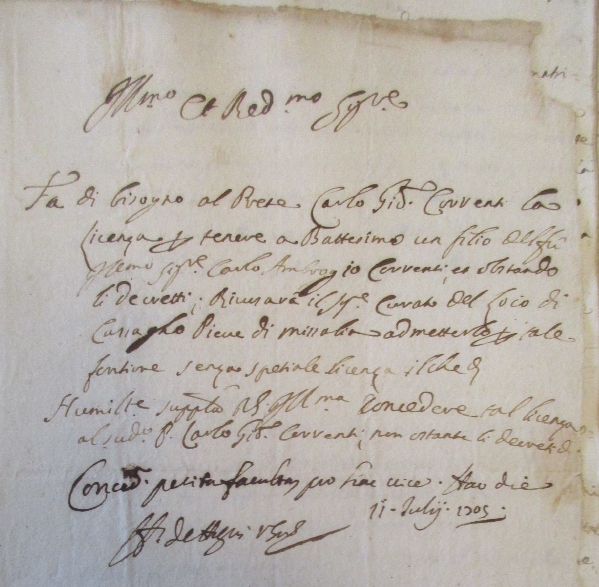 Ill.mo et Red.mo Sig.re
Fa di bisogno al Prete Carlo Gio. Correnti la
licenza p tenere a Battesimo un filio del
Sig.re Carlo Ambrogio Correnti, et obstando
li decretti; Ricusarà il Sig.re Curato del Loco di
Cassagho Pieve di missalia admetterlo p tale
fontione senza spetiale licenza il che
Humil.te supp.ta V.S. Ill.ma Concedere tal licenza
al sud.o P. Carlo Gio. Correnti, non ostante li decreti
Conced. petita facultas pro hac vice. Hac die
11. Julij. 1705.